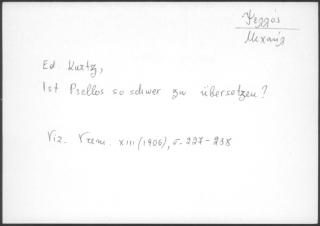 Ψελλός
Μιχαήλ
Ed. Kurtz,
Ist Psellos so schwer zu übersetzen?
Viz. Vrem. XIII (1906), σ. 227-238